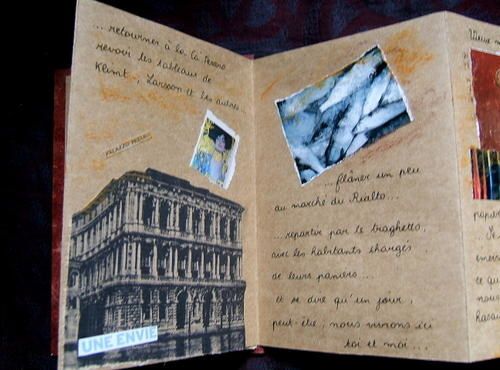 ... retourner à la Cà Pesaro
revoir les tableaux de
Klimt, Larsson et les autres...
PALAZZO PESARO
UNE ENVIE
...flâner un peu
au marché du Rialto...
...repartir par le traghetto,
avec les habitants chargés
de leurs paniers...
et se dire qu'un jour,
peut-être, nous vivrons ici
toi et moi...